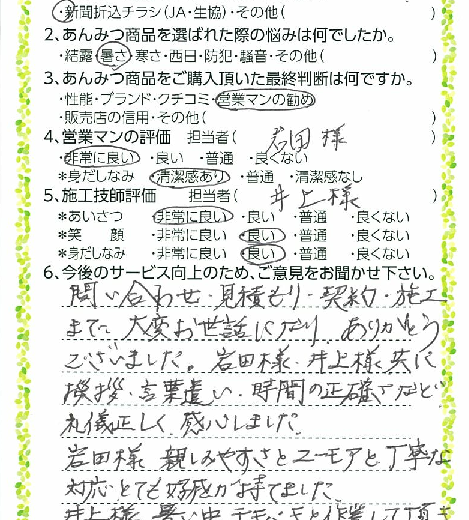 ・新聞折込チラシ(JA・生協)・その他( )
2、あんみつ商品を選ばれた際の悩みは何でしたか。
・結露・暑さ・寒さ・西日・防犯・騒音・その他( )
3、あんみつ商品をご購入頂いた最終判断は何ですか。
・性能・ブランド・クチコミ・営業マンの勧め
・販売店の信用・その他( )
4、営業マンの評価 担当者( 岩田様 )
・非常に良い ・良い ・普通 ・良くない
＊身だしなみ ・清潔感あり ・普通 ・清潔感なし
5、施工技師評価 担当者( 井上様 )
＊あいさつ ・非常に良い ・良い ・普通 ・良くない
＊笑 顔 ・非常に良い ・良い ・普通 ・良くない
＊身だしなみ ・非常に良い ・良い ・普通 ・良くない
6、今後のサービス向上のため、ご意見をお聞かせ下さい。
問い合わせ・見積もり・契約・施工
まで 大変お世話になり、ありがとう
ございました。岩田様・井上様共に
挨拶・言葉遣い・時間の正確さなど
礼儀正しく感心しました。
岩田様 親しみやすさとユーモアと丁寧な
対応とても好感が持てました。
井上様 暑い中 テキパキと作業して頂き